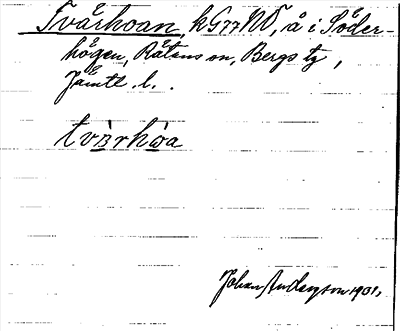 Tvårhoan, kG77NÖ, å i Söder-
högen, Råtans sn, Bergs tg,
Jämtl. l.
tvàrhòa
Johan Anderson 1931.